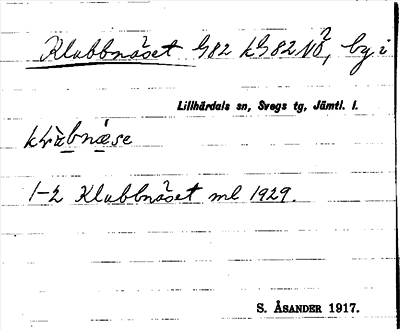 Klubbnäset 982 k982NÖ, by i
Lillhärdals sn, Svegs tg, Jämtl. l.
1-2 Klubbnäset ml 1929.
S. ÅSANDER 1917.